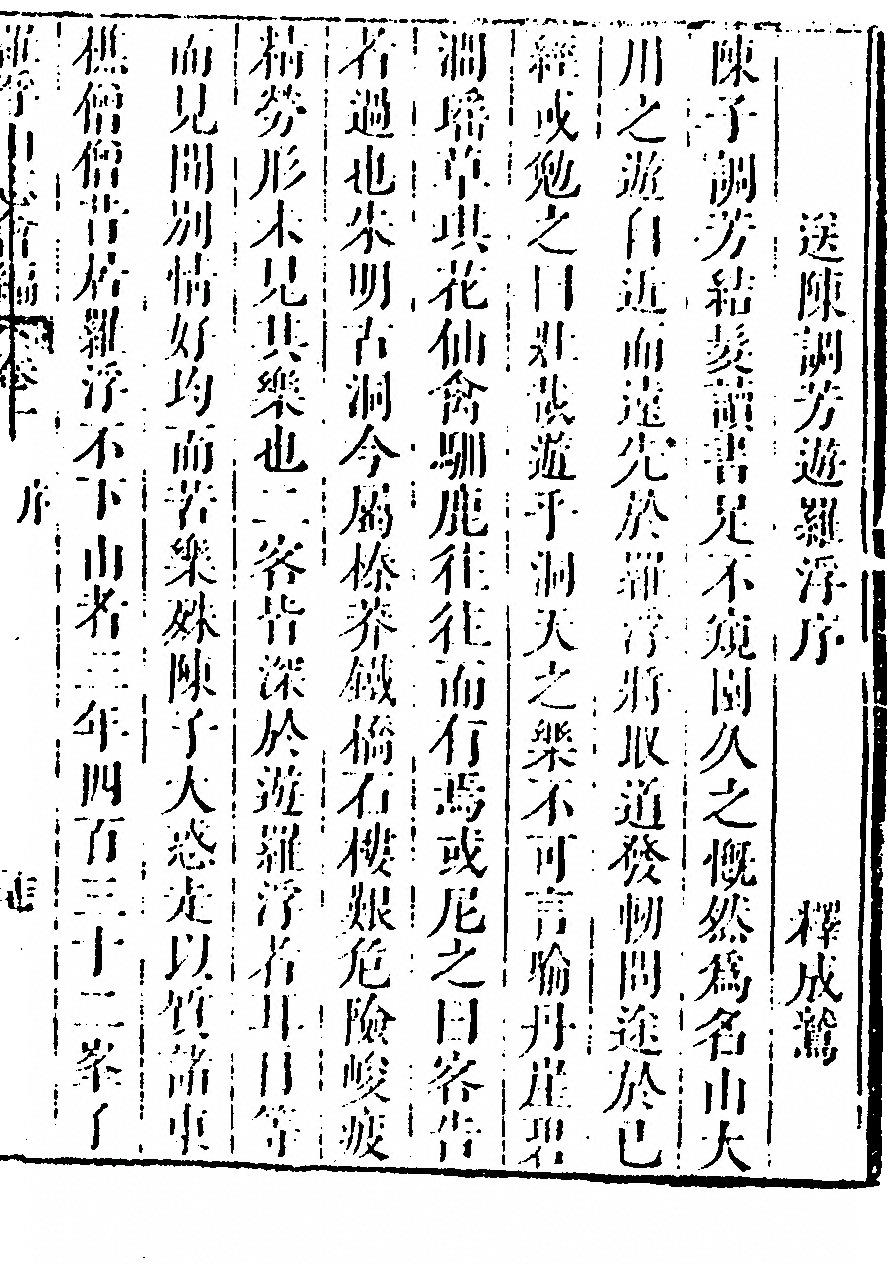 送陳調芳遊羅浮序 釋成鷲
陳子調芳結髮讀書足不窺園久之慨然爲名山大
川之遊自近而遠先於羅浮將取道發軔問途於已
經或勉之曰壯哉遊乎洞天之樂不可言喻丹崖碧
澗瑤草琪花仙禽馴鹿往往而有焉或尼之曰客告
者過也朱明古洞今屬榛莽鐵橋石樓艱危險峻疲
精勞形未見其樂也二客皆深於遊羅浮者耳目等
而見聞別情好均而苦樂殊陳子大惑走以質諸東
樵僧僧昔居羅浮不下山者三年四百三十二峯了
序